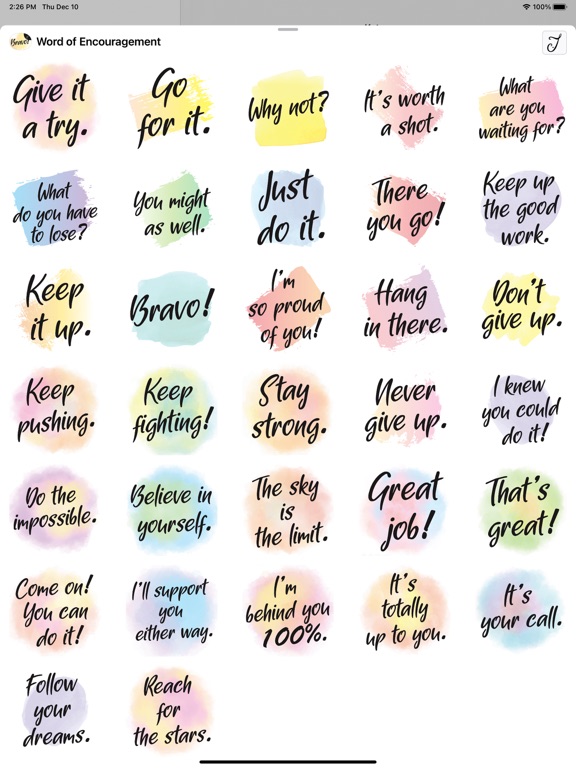 2:26 PM Thu Dec 10 100%
Bravo! Word of Encouragement
Give it
a try.
Go
for it.
Why not?
It's worth
a shot.
What
are you
waiting for?
What
do you have
to lose?
You might
as well.
Just
do it.
There
you go!
Keep up
the good
work.
Keep
it up.
Bravo!
I'm
so proud
of you!
Hang
in there.
Don't
give up.
Keep
pushing.
Keep
fighting!
Stay
strong.
Never
give up.
I knew
you could
do it!
Do the
impossible.
Believe in
yourself.
The sky
is
the limit.
Great
job!
That's
great!
Come on!
You can
do it!
I'll support
you
either way.
I'm
behind you
100%.
It's
totally
up to you.
It's
your call.
Follow
your
dreams.
Reach
for
the stars.